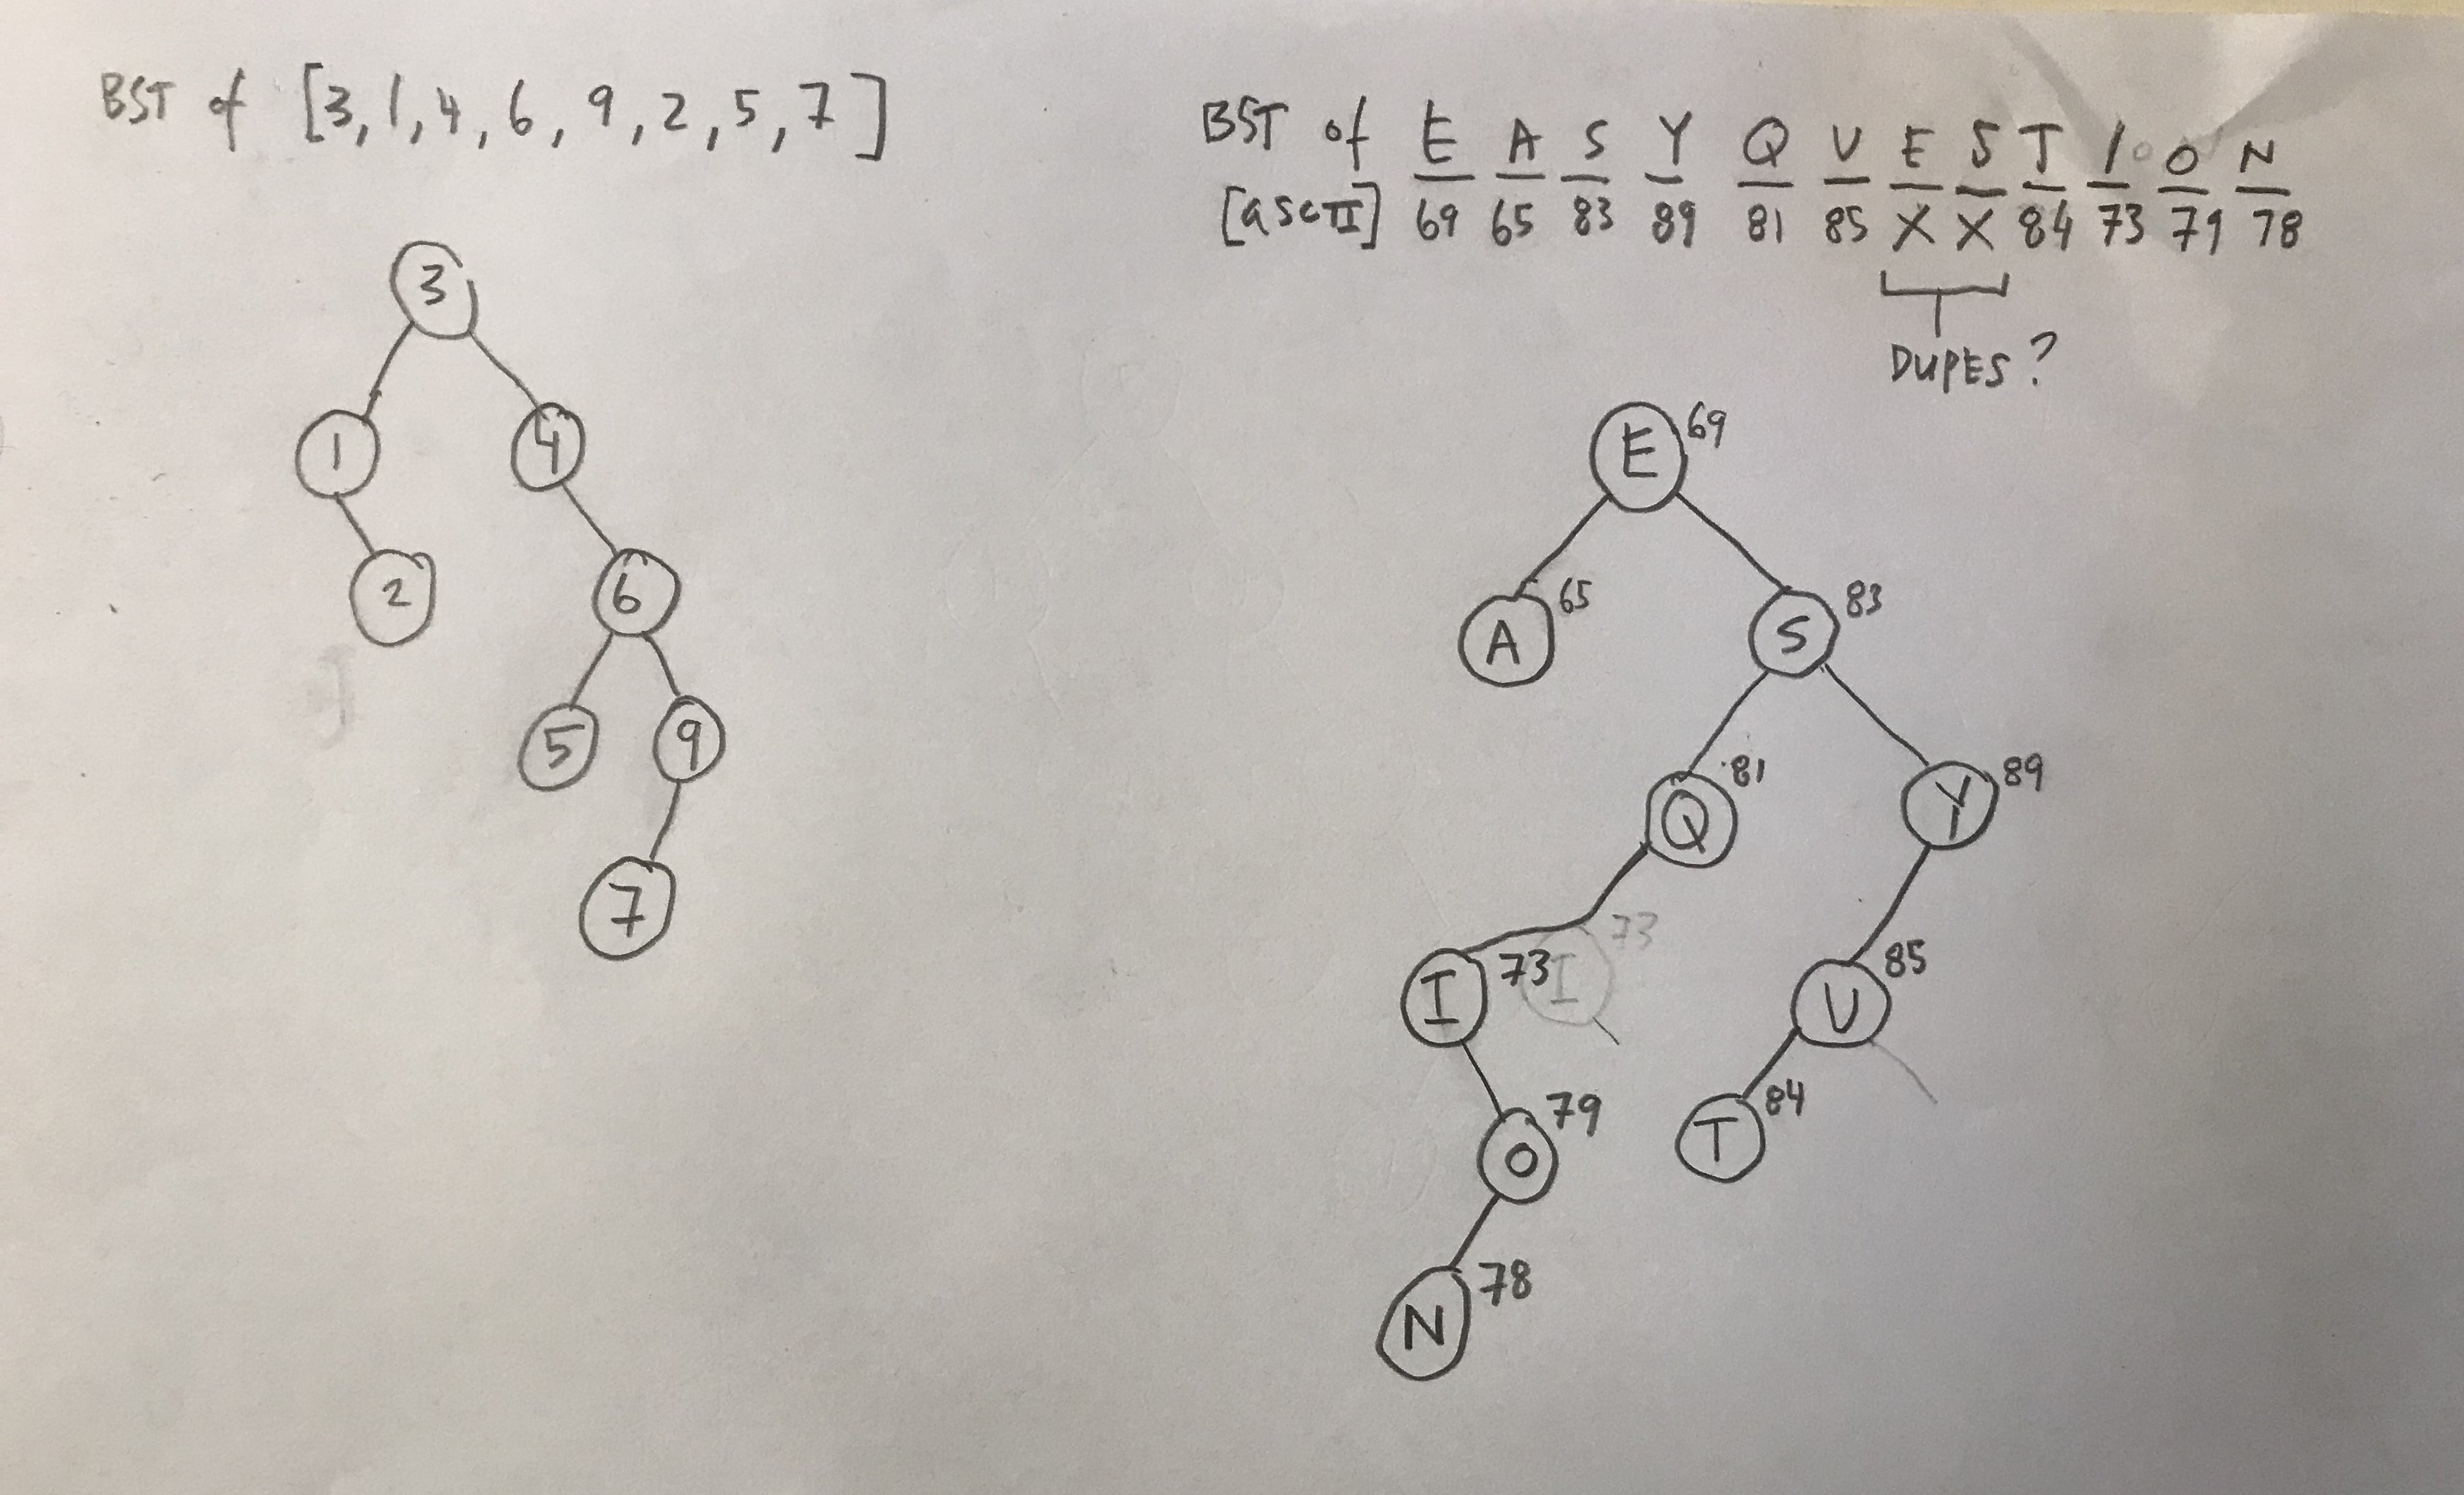 BST of [3, 1, 4, 6, 9, 2, 5, 7]
3
1 4
2 6
5 9
7
BST of E A S Y Q U E S T I O N
[ascII] 69 65 83 89 81 85 X X 84 73 79 78
DUPES?
E 69
A 65 S 83
Q 81 Y 89
I 73 I 73 U 85
O 79 T 84
N 78